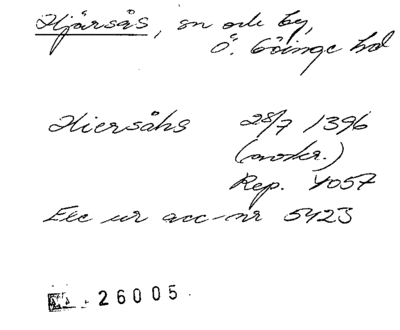 Hjärsås, sn och by,
Ö. Göinge hd
Hiersåhs 28/7 1396
(avskr.)
Rep. 4057
Exc ur acc-nr 5423
26005